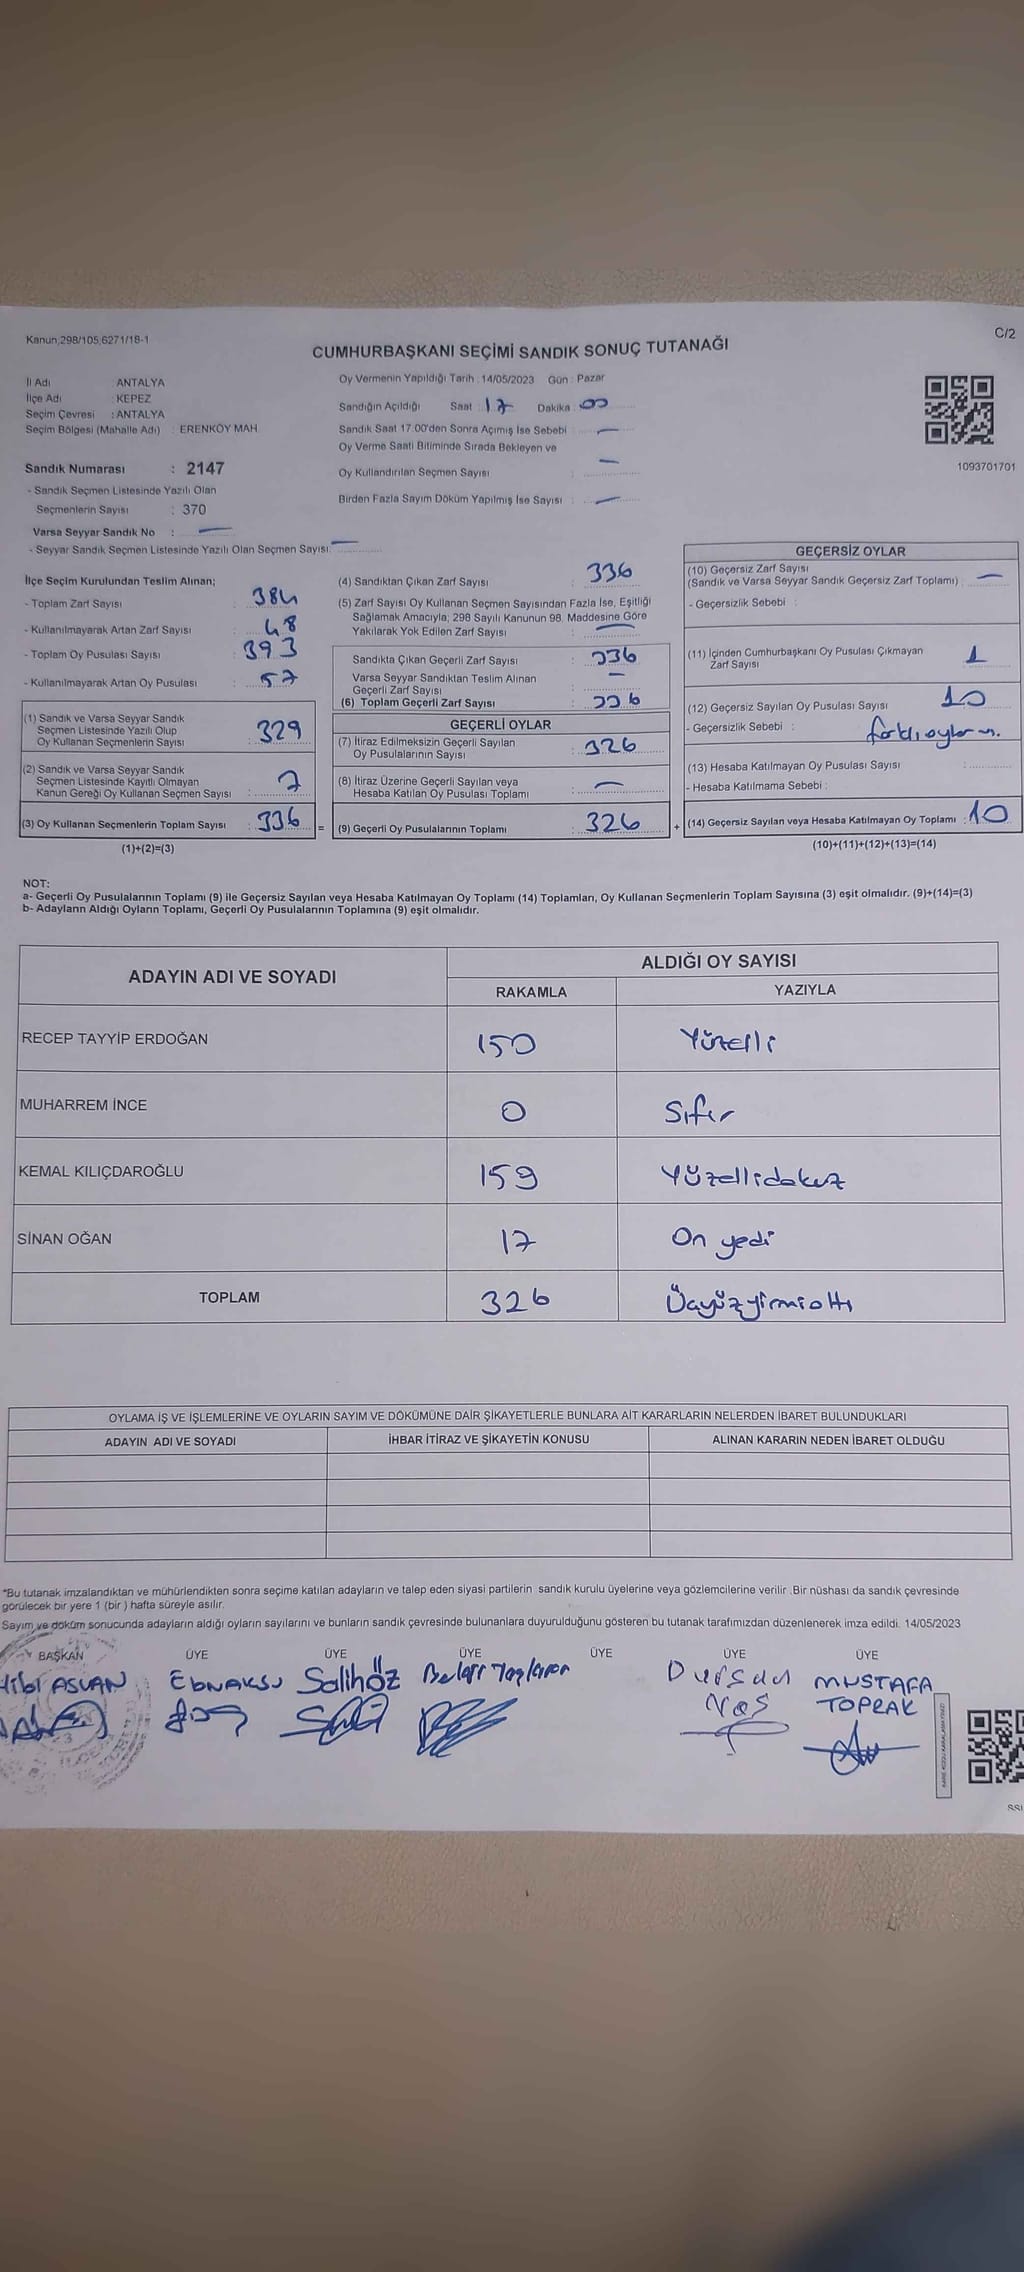 Kanun;298/105,6271/18-1
C/2
CUMHURBAŞKANI SEÇİMİ SANDIK SONUÇ TUTANAĞI
İl Adı : ANTALYA
İlçe Adı : KEPEZ
Seçim Çevresi : ANTALYA
Seçim Bölgesi (Mahalle Adı) : ERENKÖY MAH.
Sandık Numarası : 2147
- Sandık Seçmen Listesinde Yazılı Olan
Seçmenlerin Sayısı : 370
Varsa Seyyar Sandık No : —
- Seyyar Sandık Seçmen Listesinde Yazılı Olan Seçmen Sayısı: —
Oy Vermenin Yapıldığı Tarih : 14/05/2023 Gün : Pazar
Sandığın Açıldığı Saat : 17 Dakika : 00
Sandık Saat 17:00'den Sonra Açımış İse Sebebi : —
Oy Verme Saati Bitiminde Sırada Bekleyen ve
Oy Kullandırılan Seçmen Sayısı : —
Birden Fazla Sayım Döküm Yapılmış İse Sayısı : —
1093701701
İlçe Seçim Kurulundan Teslim Alınan;
- Toplam Zarf Sayısı : 384
- Kullanılmayarak Artan Zarf Sayısı : 48
- Toplam Oy Pusulası Sayısı : 393
- Kullanılmayarak Artan Oy Pusulası : 57
(1) Sandık ve Varsa Seyyar Sandık
Seçmen Listesinde Yazılı Olup
Oy Kullanan Seçmenlerin Sayısı : 329
(2) Sandık ve Varsa Seyyar Sandık
Seçmen Listesinde Kayıtlı Olmayan
Kanun Gereği Oy Kullanan Seçmen Sayısı : 7
(3) Oy Kullanan Seçmenlerin Toplam Sayısı : 336
(1)+(2)=(3)
(4) Sandıktan Çıkan Zarf Sayısı : 336
(5) Zarf Sayısı Oy Kullanan Seçmen Sayısından Fazla İse, Eşitliği
Sağlamak Amacıyla; 298 Sayılı Kanunun 98. Maddesine Göre
Yakılarak Yok Edilen Zarf Sayısı : —
Sandıkta Çıkan Geçerli Zarf Sayısı : 336
Varsa Seyyar Sandıktan Teslim Alınan
Geçerli Zarf Sayısı : —
(6) Toplam Geçerli Zarf Sayısı : 336
GEÇERLİ OYLAR
(7) İtiraz Edilmeksizin Geçerli Sayılan
Oy Pusulalarının Sayısı : 326
(8) İtiraz Üzerine Geçerli Sayılan veya
Hesaba Katılan Oy Pusulası Toplamı : —
= (9) Geçerli Oy Pusulalarının Toplamı : 326
GEÇERSİZ OYLAR
(10) Geçersiz Zarf Sayısı
(Sandık ve Varsa Seyyar Sandık Geçersiz Zarf Toplamı) : —
- Geçersizlik Sebebi :
(11) İçinden Cumhurbaşkanı Oy Pusulası Çıkmayan
Zarf Sayısı : 1
(12) Geçersiz Sayılan Oy Pusulası Sayısı : 10
- Geçersizlik Sebebi :
(13) Hesaba Katılmayan Oy Pusulası Sayısı :
- Hesaba Katılmama Sebebi :
+ (14) Geçersiz Sayılan veya Hesaba Katılmayan Oy Toplamı : 10
(10)+(11)+(12)+(13)=(14)
NOT:
a- Geçerli Oy Pusulalarının Toplamı (9) ile Geçersiz Sayılan veya Hesaba Katılmayan Oy Toplamı (14) Toplamları, Oy Kullanan Seçmenlerin Toplam Sayısına (3) eşit olmalıdır. (9)+(14)=(3)
b- Adayların Aldığı Oyların Toplamı, Geçerli Oy Pusulalarının Toplamına (9) eşit olmalıdır.
ADAYIN ADI VE SOYADI
ALDIĞI OY SAYISI
RAKAMLA YAZIYLA
RECEP TAYYİP ERDOĞAN 150 Yüzelli
MUHARREM İNCE 0 Sıfır
KEMAL KILIÇDAROĞLU 159 Yüzellidokuz
SİNAN OĞAN 17 On yedi
TOPLAM 326 Üçyüzyirmialtı
OYLAMA İŞ VE İŞLEMLERİNE VE OYLARIN SAYIM VE DÖKÜMÜNE DAİR ŞİKAYETLERLE BUNLARA AİT KARARLARIN NELERDEN İBARET BULUNDUKLARI
ADAYIN ADI VE SOYADI İHBAR İTİRAZ VE ŞİKAYETİN KONUSU ALINAN KARARIN NEDEN İBARET OLDUĞU
*Bu tutanak imzalandıktan ve mühürlendikten sonra seçime katılan adayların ve talep eden siyasi partilerin sandık kurulu üyelerine veya gözlemcilerine verilir .Bir nüshası da sandık çevresinde
görülecek bir yere 1 (bir ) hafta süreyle asılır.
Sayım ve döküm sonucunda adayların aldığı oyların sayılarını ve bunların sandık çevresinde bulunanlara duyurulduğunu gösteren bu tutanak tarafımızdan düzenlenerek imza edildi. 14/05/2023
BAŞKAN ÜYE ÜYE ÜYE ÜYE ÜYE ÜYE
ASVAN Salih Öz Dursun MUSTAFA
TOPRAK